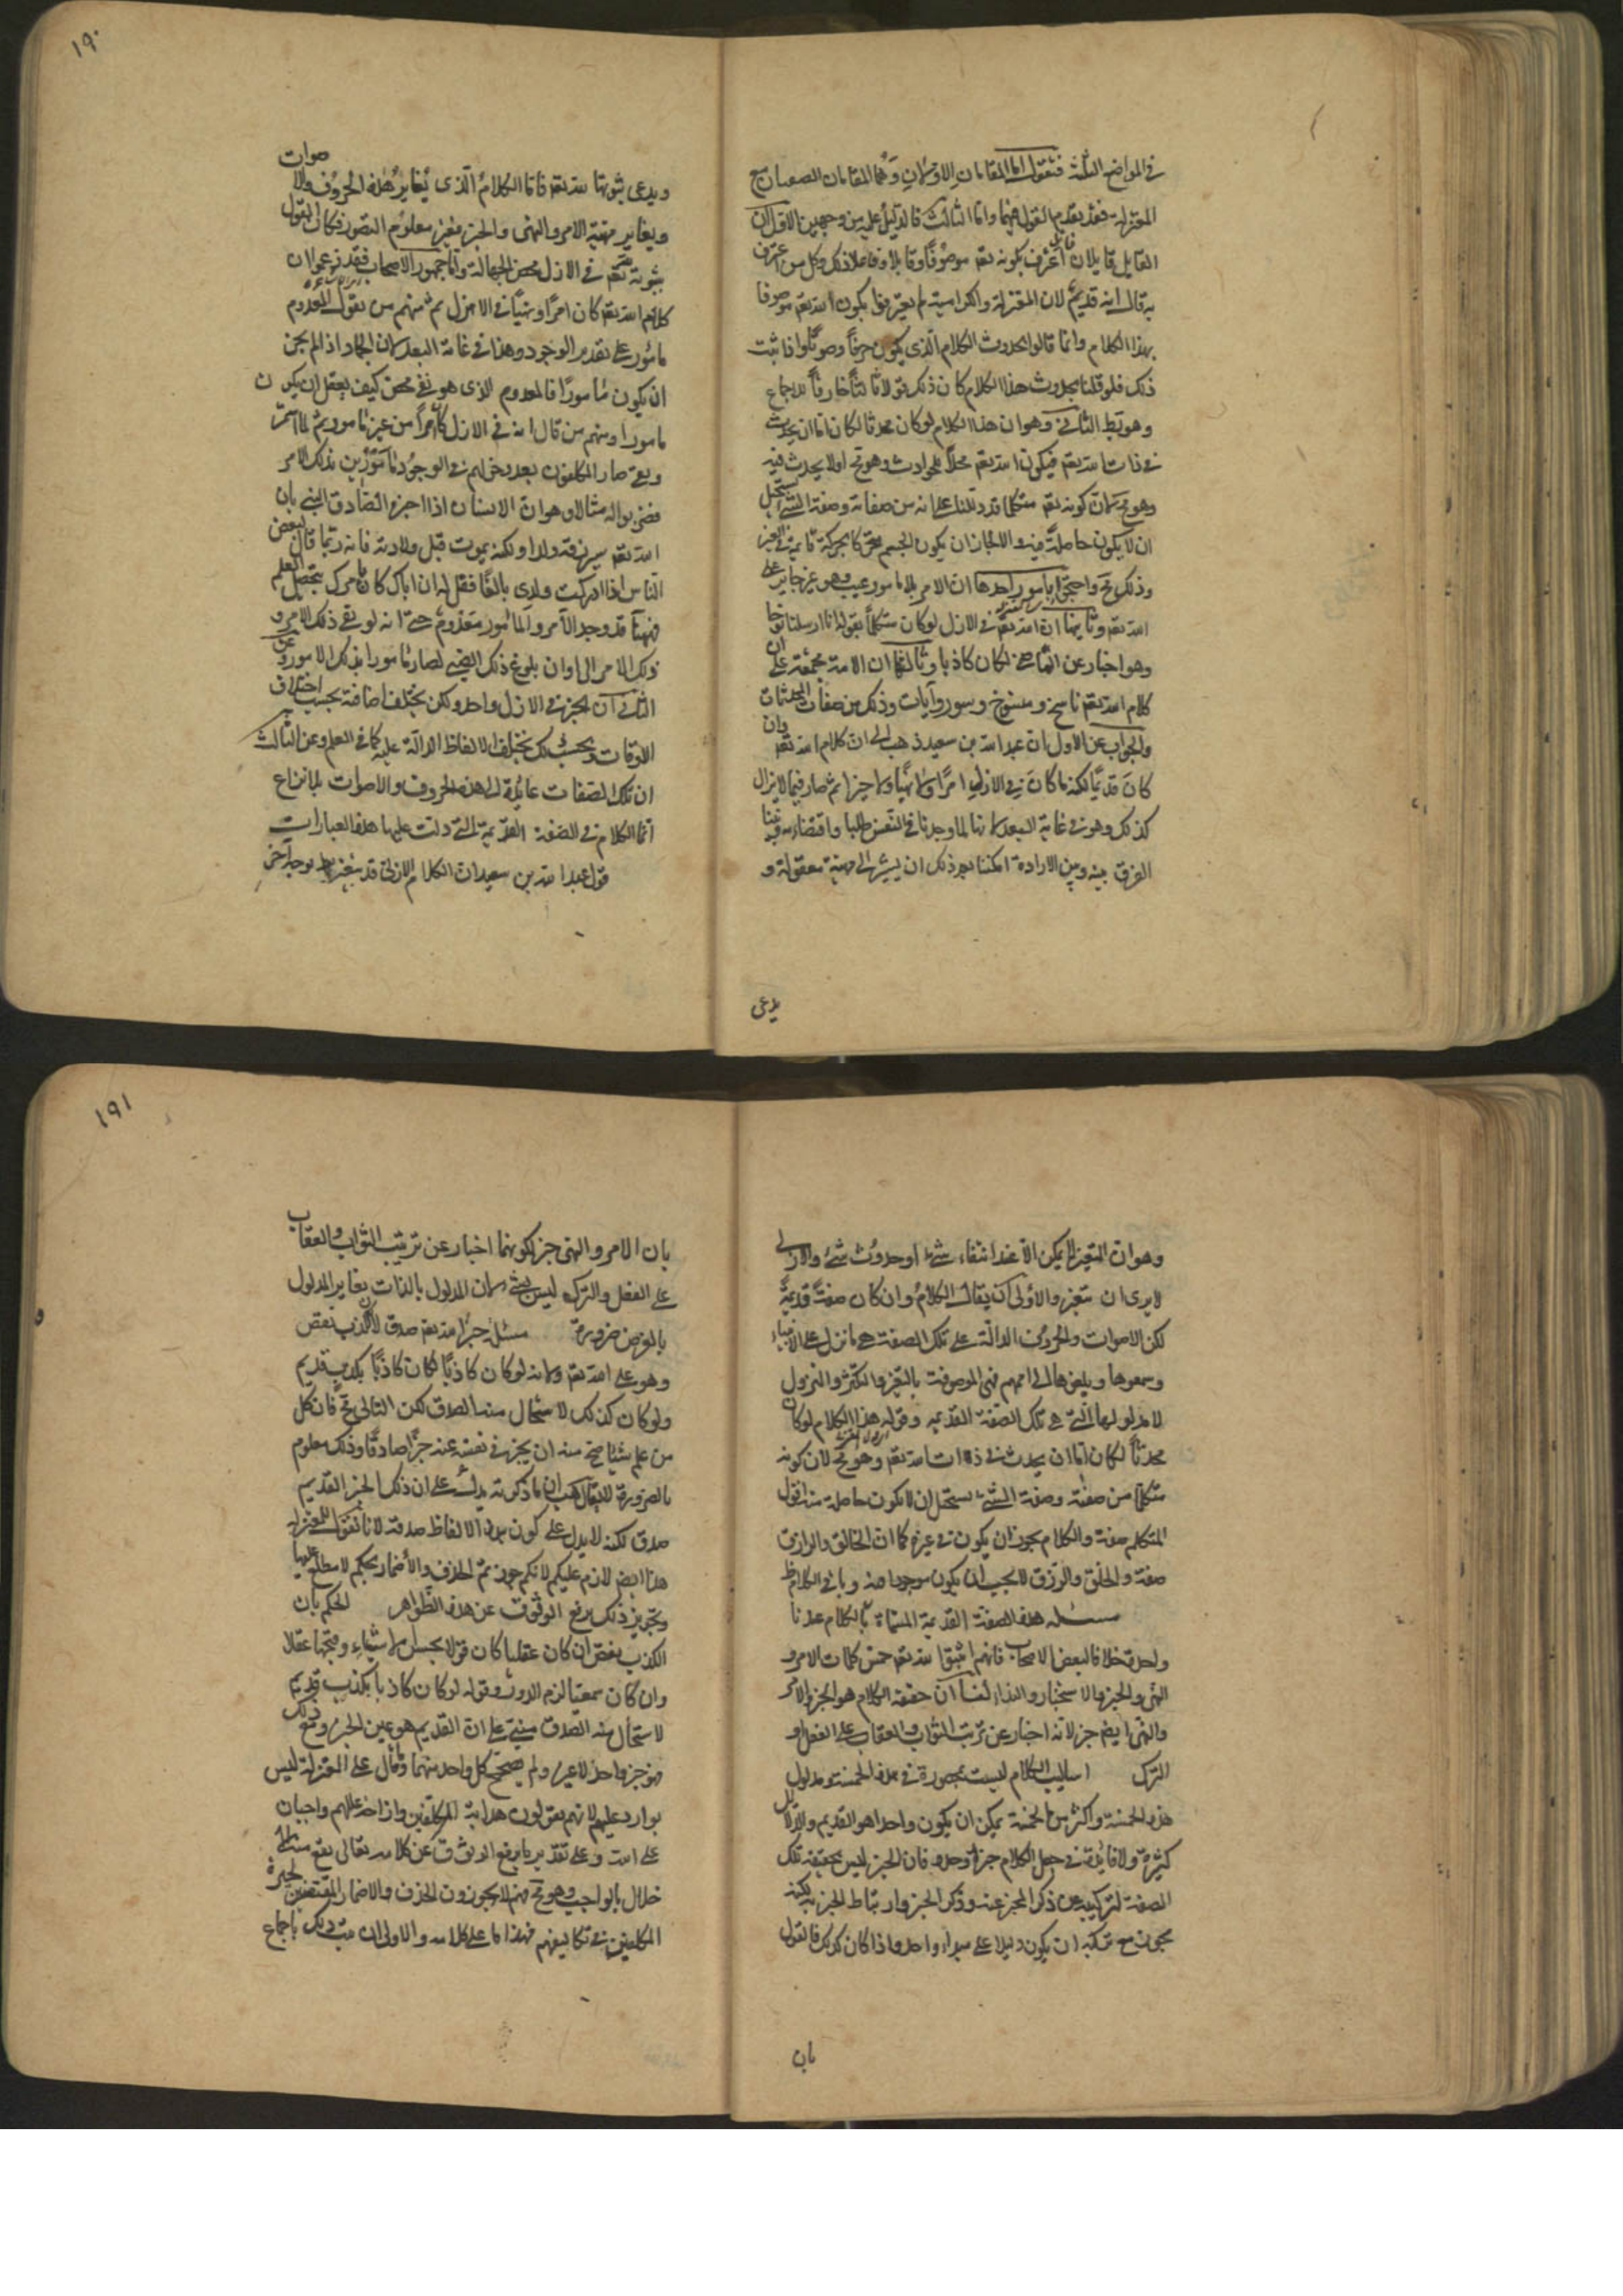 في المواضع الثلثة فنقول اما المقامان الاولان وهما المقامان الصعبان مع
المعتزلة فقد تقدم القول فيهما واما الثالث فالدليل عليه من وجهين الاول ان
القايل قايلان قايل اعترف بكونه تعـ موصوفا وقايلا وكل من اعترف
به قال انه قديم لان المعتزلة والكرامية لم يعترفوا بكون الله تعـ موصوفا
بهذا الكلام وانما قالوا بحدوث الكلام الذي يكون حرفا وصوتا واذا ثبت
ذلك فلو قلنا بحدوث هذا الكلام كان ذلك قولا ثالثا خارقا للاجماع
وهو بط الثاني وهو ان هذا الكلام لو كان محدثا لكان اما ان يحدث
في ذات الله تعـ فيكون الله تعـ محلا للحوادث وهو مح او لا يحدث فيه
وهو مح لان كونه تعـ متكلما قد دللنا على انه من صفاته وصفة الشئ يستحيل
ان لا يكون حاصلة فيه والا لجاز ان يكون الجسم متحركا بحركة قايمة في الغير
وذلك مح واحتجوا بامور احدها ان الامر بلا مامور عيب وهو غير جايز على
الله تعـ وثانيها ان الله تعـ في الازل لو كان متكلما بقوله انا ارسلنا نوحا
وهو اخبار عن الماضى لكان كاذبا وثالثها ان الامة مجمعة على ان
كلام الله تعـ ناسخ ومنسوخ وسور وآيات وذلك من صفات المحدثات
والجواب عن الاول ان عبد الله بن سعيد ذهب الى ان كلام الله تعـ وان
كان قديما لكنه ما كان في الازل امرا ولا نهيا ولا خبرا ثم صار فيما لا يزال
كذلك وهو في غاية البعد لانا لما وجدنا في النفس طلبا واقتضاء وبينا
الفرق بينه وبين الارادة امكننا بعد ذلك ان يشير الى مهية معقولة و
يدعى
١٩٠
ويدعى ثبوتها لله تعـ فاما الكلام الذي يغاير هذه الحروف والاصوات
ويغاير مهية الامر والنهى والخبر فغير معلوم التصور فكان القول
بثبوته لله تعـ في الازل محض الجهالة واما جمهور الاصحاب فقد زعموا ان
كلام الله تعـ كان امرا ونهيا في الازل ثم منهم من يقول المعدوم
مامور على تقدير الوجود وهذا في غاية البعد لان الجماد اذا لم يجز
ان يكون مامورا فالمعدوم الذي هو نفى محض كيف يعقل ان يكون
مامورا ومنهم من قال انه في الازل كان امرا من غير مامور ثم لما استمر
وبقي صار المكلفون بعد دخولهم في الوجود مامورين بذلك الامر
فضربوا له مثالا وهو ان الانسان اذا اخبره الصادق النبي بان
الله تعـ سيرزقه ولدا ولكنه يموت قبل ولادته فانه ربما قال لبعض
الناس اذا ادركت ولدى بالغا فقل له ان اباك كان يامرك بتحصيل العلم
فههنا قد وجد الآمر والمامور معدوم حتى انه لو بقي ذلك الامر و
ذلك الامر الى اوان بلوغ ذلك الصبى لصار مامورا بذلك الامر وعن
الثاني ان الخبر في الازل واحد ولكن يختلف اضافته بحسب اختلاف
الاوقات وبحسب ذلك يختلف الالفاظ الدالة عليه كما في العلم وعن الثالث
ان تلك الصفات عايدة الى هذه الحروف والاصوات لا نزاع
انما الكلام في الصفة القديمة التي دلت عليها هذه العبارات
قول عبد الله بن سعيد ان الكلام الازلى قد يتغير بط بوجه آخر
وهو ان التغير لا يمكن الا عند انتفاء شئ او حدوث شئ والازلى
لا يرى ان يتغير والاولى ان يقال الكلام وان كان صفة قديمة
لكن الاصوات والحروف الدالة على تلك الصفة هى ما نزل على الانبياء
وسمعوها وبلغوها الى اممهم فهى الموصوفة بالتغير والتكثر والنزول
لا مدلولها التي هى تلك الصفة القديمة وقوله هذا الكلام لو كان
محدثا لكان اما ان يحدث في ذات الله تعـ وهو مح لان كونه
متكلما من صفته وصفة الشئ يستحيل ان لا يكون حاصلة فيه اقول
المتكلم صفة والكلام يجوز ان يكون في غيره كما ان الخالق والرازق
صفة والخلق والرزق لا يجب ان يكون موجودا منه وباقى الكلام ظ
مسئلة هذه الصفة القديمة المسماة بالكلام عندنا
واحدة خلافا لبعض الاصحاب فانهم اثبتوا لله تعـ خمس كلمات الامر و
النهى والخبر والاستخبار والنداء لنا ان حقيقة الكلام هو الخبر والامر
والنهى ايضـ خبر لانه اخبار عن ترتب الثواب والعقاب على الفعل و
الترك اساليب الكلام ليست محصورة في هذه الخمسة ومدلول
هذه الخمسة واكثر من الخمسة يمكن ان يكون واحدا هو القديم والدلايل
كثيرة ولا فايدة في جعل الكلام خبرا وحده فان الخبر ليس بحقيقة تلك
الصفة لتركيبه من ذكر المخبر عنه وذكر الخبر وارتباط الخبر به لكنه
يجوز مع تركبه ان يكون دليلا على مبداء واحد واذا كان كذلك فالقول
بان
١٩١
بان الامر والنهى خبر لكونهما اخبار عن ترتب الثواب والعقاب
على الفعل والترك ليس بشئ لان المدلول بالذات يغاير المدلول
بالعرض ضرورة مسئلة خبر الله تعـ صدق لان الكذب نقص
وهو على الله تعـ ولانه لو كان كاذبا لكان كاذبا بكذب قديم
ولو كان كذلك لاستحال منه الصدق لكن التالى مح فان كل
من علم شيئا صح منه ان يخبر في نفسه عنه خبرا صادقا وذلك معلوم
بالضرورة لا يقال هب ان ما ذكرته يدل على ان ذلك الخبر القديم
صدق لكنه لا يدل على كون هذه الالفاظ صدقه لانا نقول للمعتزلة
هذا ايضـ لازم عليكم لانكم جوزتم الحذف والاضمار بحكم لا مطلع عليها
وتجويز ذلك يرفع الوثوق عن هذه الظواهر الحكم بان
الكذب نقص ان كان عقليا كان قولا بحسن الاشياء وقبحها عقلا
وان كان سمعيا لزم الدور وقوله لو كان كاذبا بكذب قديم
لاستحال منه الصدق مبنى على ان القديم هو عين الخبر ومع ذلك
فهو خبر واحد لا غير ولم يصحح كل واحد منهما وما قال على المعتزلة ليس
بوارد عليهم لانهم يقولون هداية المكلفين وازاحة عللهم واجبان
على الله وعلى تقدير ما يرفع الوثوق عن كلامه تعالى يقع منه
خلال بالواجب وهو مح فهم لا يجوزون الحذف والاضمار المقتضيين لحيرة
المكلفين في تكاليفهم فهذا ما على كلامه والاولى ان يثبت ذلك باجماع